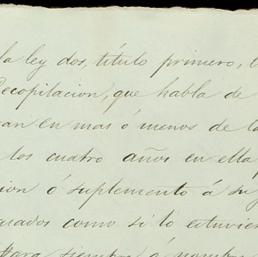 la ley dos, título primero, l
Recopilacion, que habla de
an en mas ó menos de la
los cuatro años en ella
cion ó suplemento á su j
uados como si lo estuvie
Para siempre á nombre